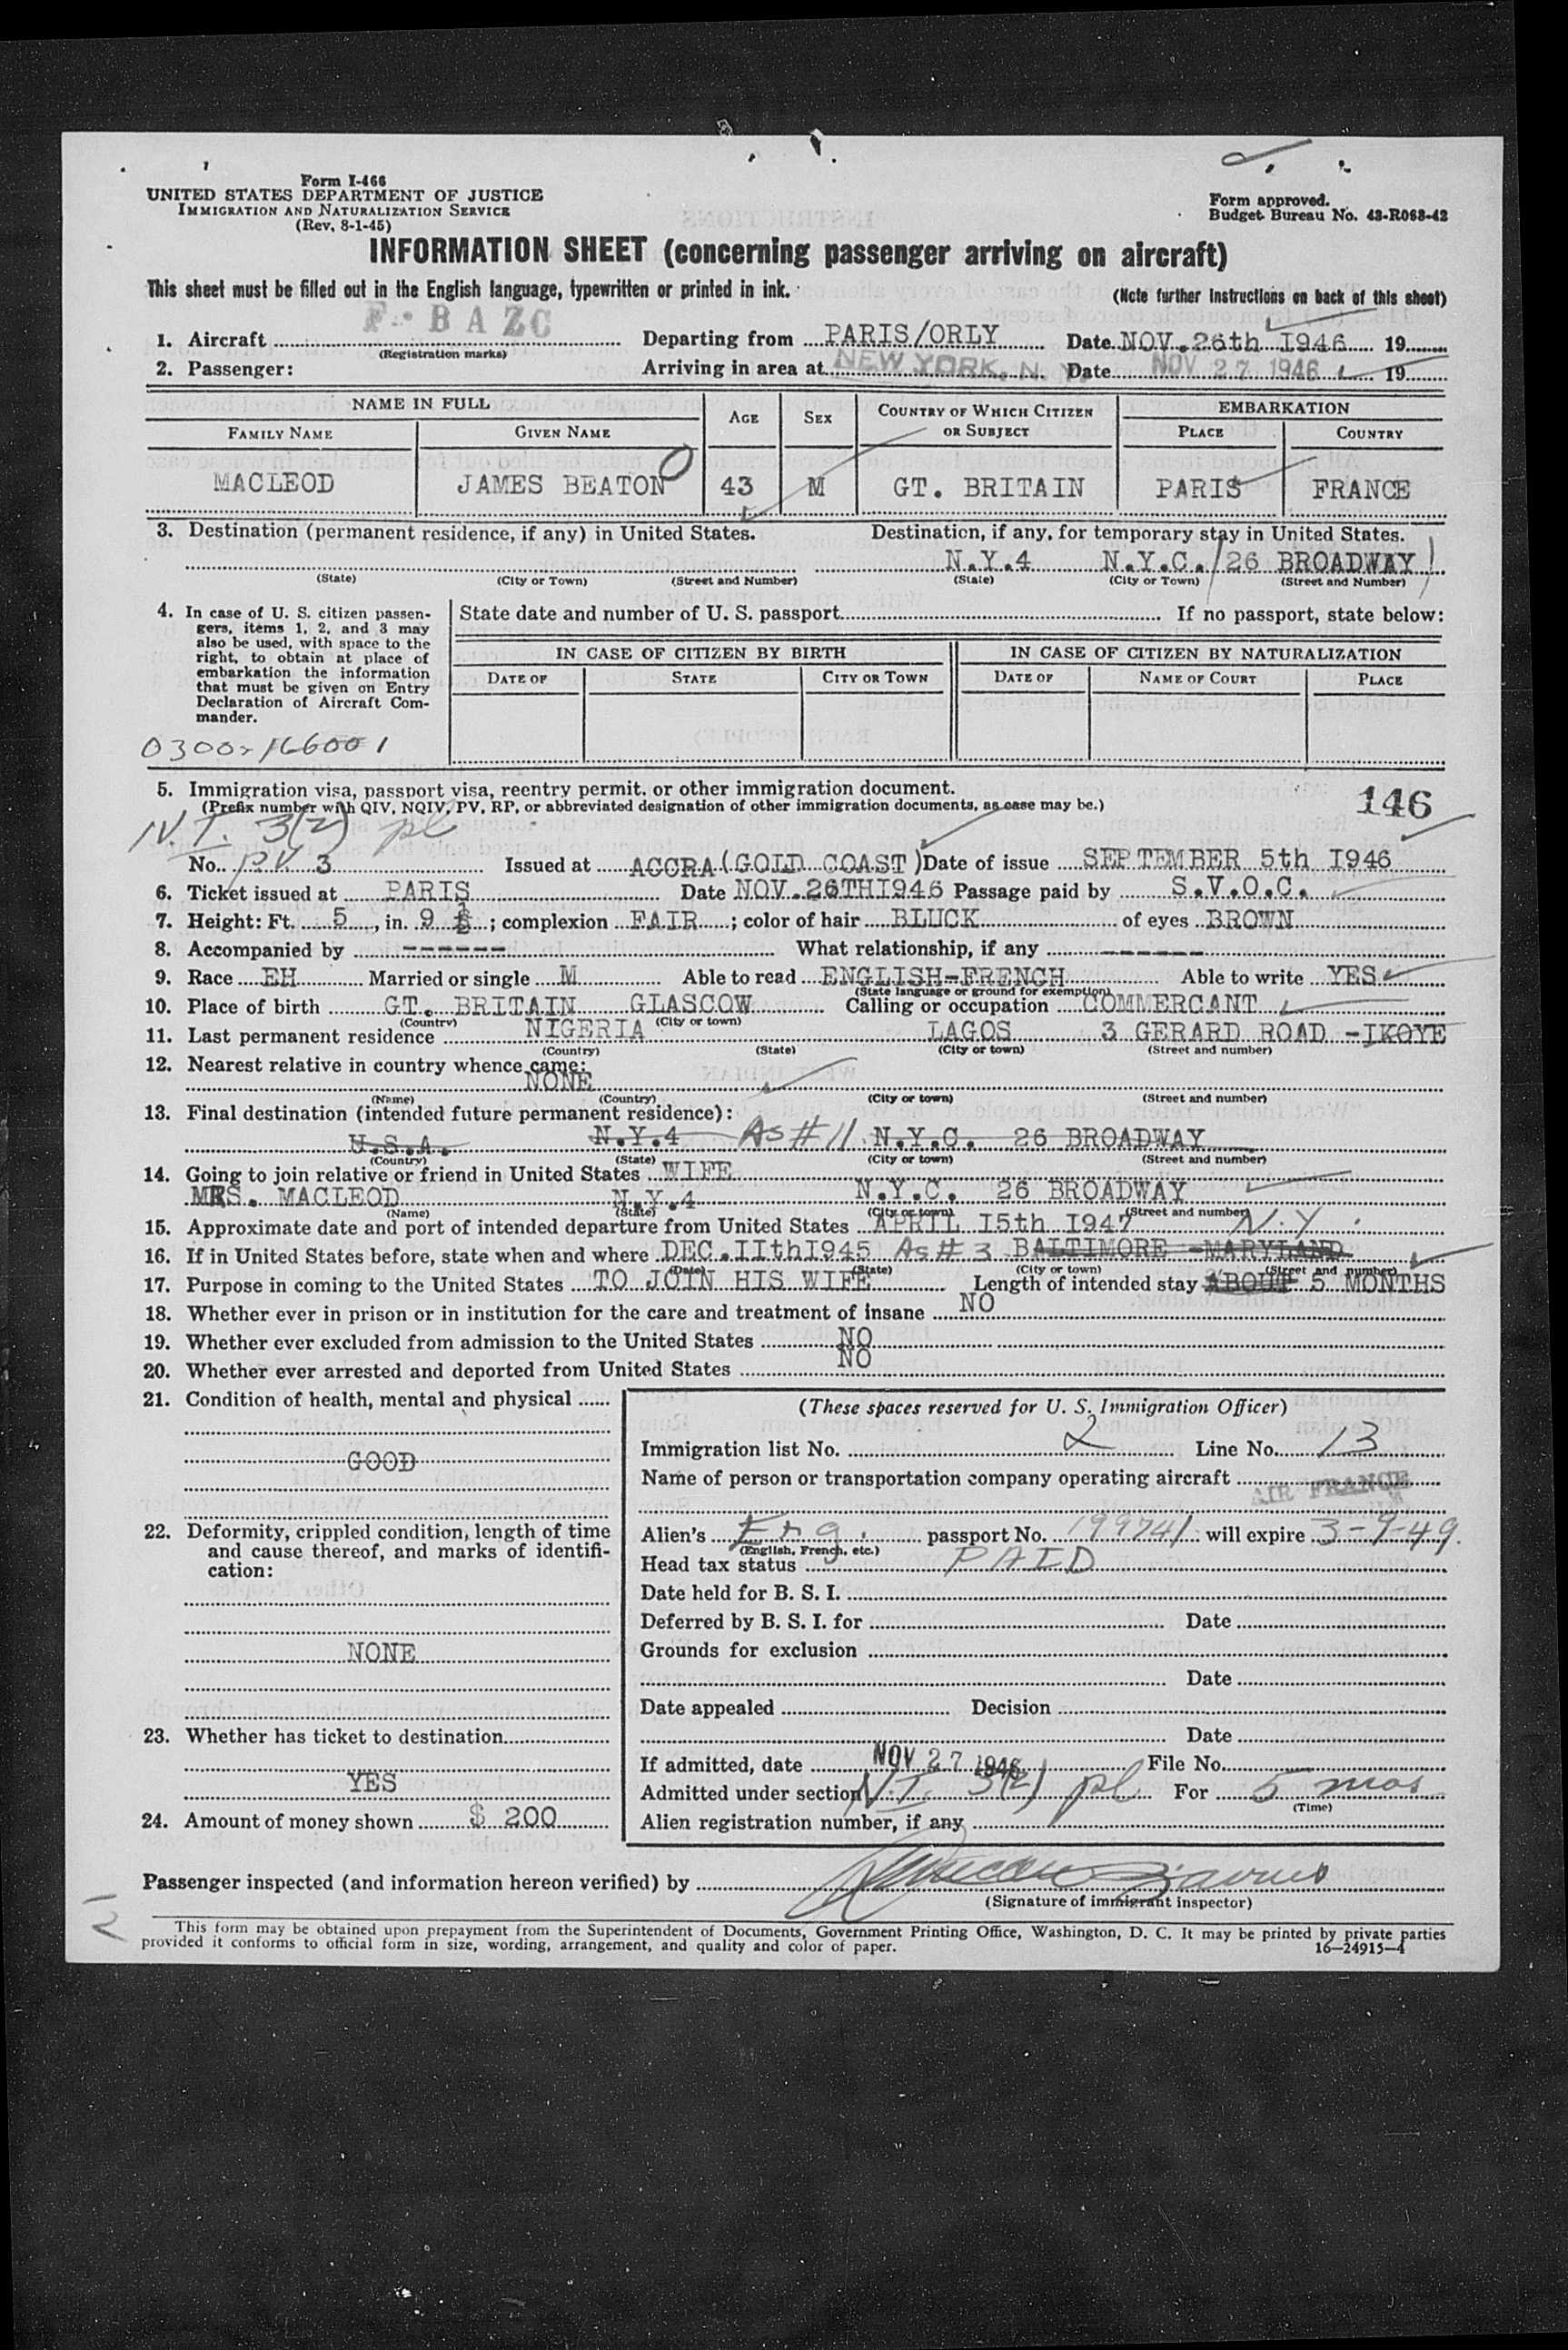 Form I-466
UNITED STATES DEPARTMENT OF JUSTICE
IMMIGRATION AND NATURALIZATION SERVICE
(Rev. 8-1-45)
Form approved.
Budget Bureau No. 43-R068-42
INFORMATION SHEET (concerning passenger arriving on aircraft)
This sheet must be filled out in the English language, typewritten or printed in ink.
(Note further instructions on back of this sheet)
1. Aircraft F-BAZC Departing from PARIS/ORLY Date NOV.26th I946 19
(Registration marks)
2. Passenger: Arriving in area at NEW YORK, N. Y. Date NOV 27 1946 19
NAME IN FULL AGE SEX COUNTRY OF WHICH CITIZEN OR SUBJECT EMBARKATION
FAMILY NAME GIVEN NAME PLACE COUNTRY
MACLEOD JAMES BEATON 43 M GT. BRITAIN PARIS FRANCE
3. Destination (permanent residence, if any) in United States. Destination, if any, for temporary stay in United States.
N.Y.4 N.Y.C. 26 BROADWAY
(State) (City or Town) (Street and Number) (State) (City or Town) (Street and Number)
4. In case of U. S. citizen passengers, items 1, 2, and 3 may also be used, with space to the right, to obtain at place of embarkation the information that must be given on Entry Declaration of Aircraft Commander.
State date and number of U. S. passport If no passport, state below:
IN CASE OF CITIZEN BY BIRTH IN CASE OF CITIZEN BY NATURALIZATION
DATE OF STATE CITY OR TOWN DATE OF NAME OF COURT PLACE
5. Immigration visa, passport visa, reentry permit, or other immigration document.
(Prefix number with QIV, NQIV, PV, RP, or abbreviated designation of other immigration documents, as case may be.)
146
N.I. 3(2) pl
No. P.V. 3 Issued at ACCRA(GOLD COAST) Date of issue SEPTEMBER 5th I946
6. Ticket issued at PARIS Date NOV.26THI946 Passage paid by S.V.O.C.
7. Height: Ft. 5, in. 9 ; complexion FAIR; color of hair BLUCK of eyes BROWN
8. Accompanied by ------ What relationship, if any ------
9. Race EH Married or single M Able to read ENGLISH-FRENCH Able to write YES
(State language or ground for exemption)
10. Place of birth GT. BRITAIN GLASCOW Calling or occupation COMMERCANT
(Country) (City or town)
11. Last permanent residence NIGERIA LAGOS 3 GERARD ROAD -IKOYE
(Country) (State) (City or town) (Street and number)
12. Nearest relative in country whence came:
NONE
(Name) (Country) (City or town) (Street and number)
13. Final destination (intended future permanent residence):
U.S.A. N.Y.4 As # 11 N.Y.C. 26 BROADWAY
(Country) (State) (City or town) (Street and number)
14. Going to join relative or friend in United States WIFE
MRS. MACLEOD N.Y.4 N.Y.C. 26 BROADWAY
(Name) (State) (City or town) (Street and number)
15. Approximate date and port of intended departure from United States APRIL I5th I947 N.Y.
16. If in United States before, state when and where DEC.IIthI945 As # 3 BALTIMORE -MARYLAND
(Date) (State) (City or town) (Street and number)
17. Purpose in coming to the United States TO JOIN HIS WIFE Length of intended stay ABOUT 5 MONTHS
18. Whether ever in prison or in institution for the care and treatment of insane NO
19. Whether ever excluded from admission to the United States NO
20. Whether ever arrested and deported from United States NO
21. Condition of health, mental and physical
GOOD
22. Deformity, crippled condition, length of time and cause thereof, and marks of identification:
NONE
23. Whether has ticket to destination
YES
24. Amount of money shown $ 200
(These spaces reserved for U. S. Immigration Officer)
Immigration list No. 2 Line No. 13
Name of person or transportation company operating aircraft AIR FRANCE
Alien's Eng. passport No. 199741 will expire 3-9-49.
(English, French, etc.)
Head tax status PAID
Date held for B. S. I.
Deferred by B. S. I. for Date
Grounds for exclusion
Date
Date appealed Decision
Date
If admitted, date NOV 27 1946 File No.
Admitted under section N.I. 3(2) pl For 5 mos
(Time)
Alien registration number, if any
Passenger inspected (and information hereon verified) by
(Signature of immigrant inspector)
This form may be obtained upon prepayment from the Superintendent of Documents, Government Printing Office, Washington, D. C. It may be printed by private parties
provided it conforms to official form in size, wording, arrangement, and quality and color of paper. 16—24915-4